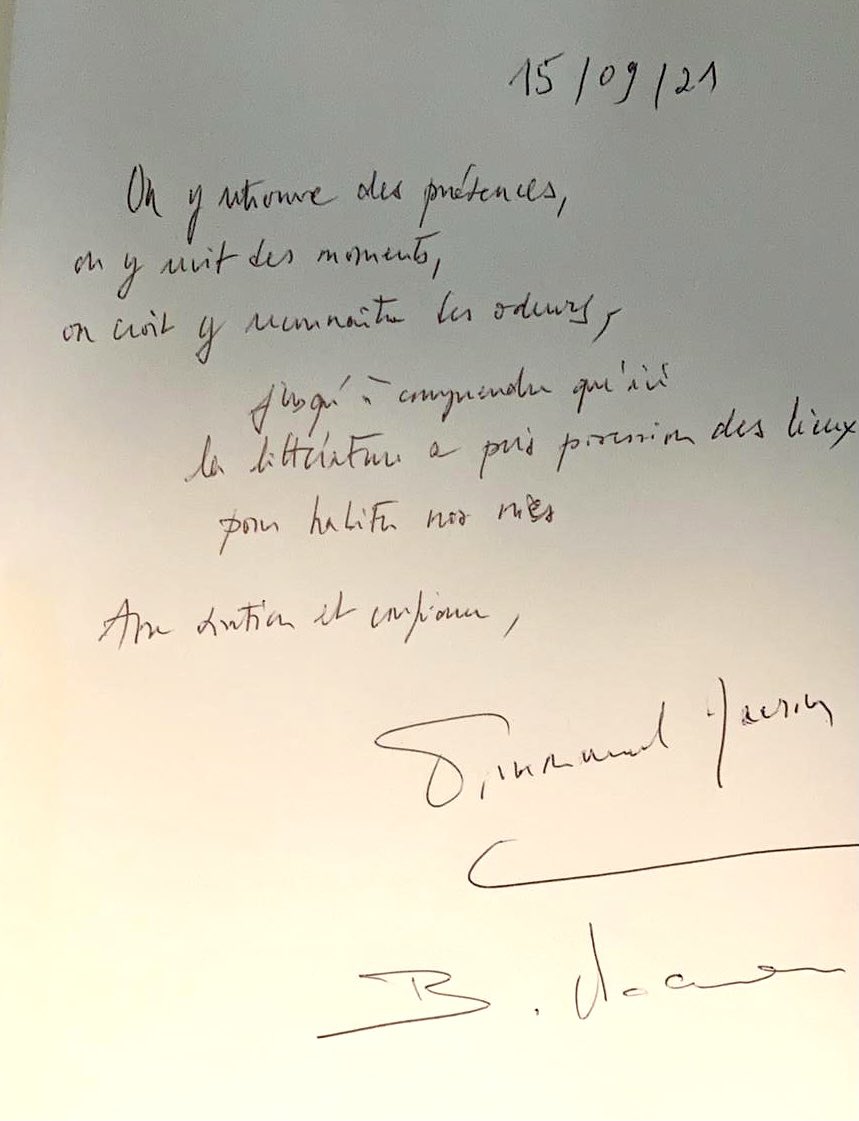 15/09/21
On y retrouve des présences,
on y vit des moments,
on croit y reconnaître les odeurs,
jusqu'à comprendre qu'ici
la littérature a pris possession des lieux
pour habiter nos vies
Avec et confiance,
Emmanuel Macron
B. Macron